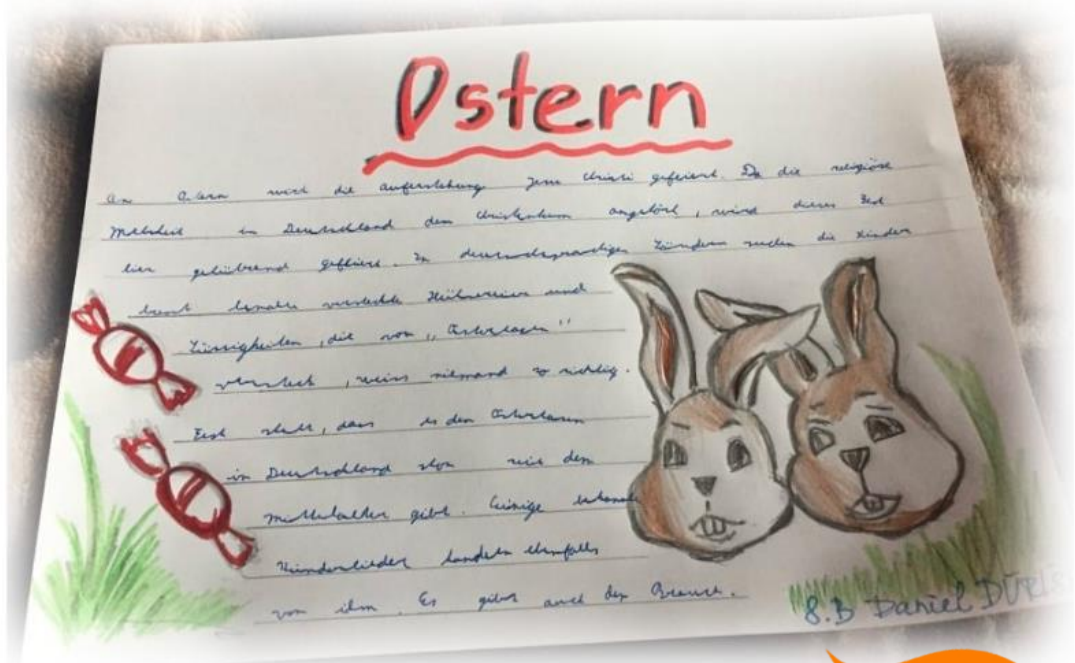 Ostern
An Ostern wird die auferstehung Jesu Christi gefeiert. Da die religiöse
Mehrheit in Deutschland dem Christentum angehört, wird dieses Fest
hier gebührend gefeiert. In deutschsprachigen Ländern suchen die Kinder
bunt bemalte versteckte Hühnereier und
Süssigkeiten, die vom „Osterhasen"
versteckt, weiss niemand so richtig.
Fest steht, dass es den Osterhasen
in Deutschland seit dem
Mittelalter gibt. Einige
Kinderlieder handeln ebenfalls
von ihm. Es gibt auch den Brauch.
8.B Daniel